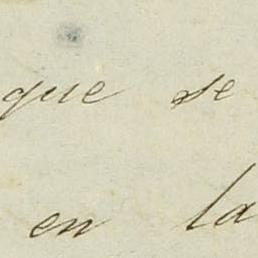 que se
en la